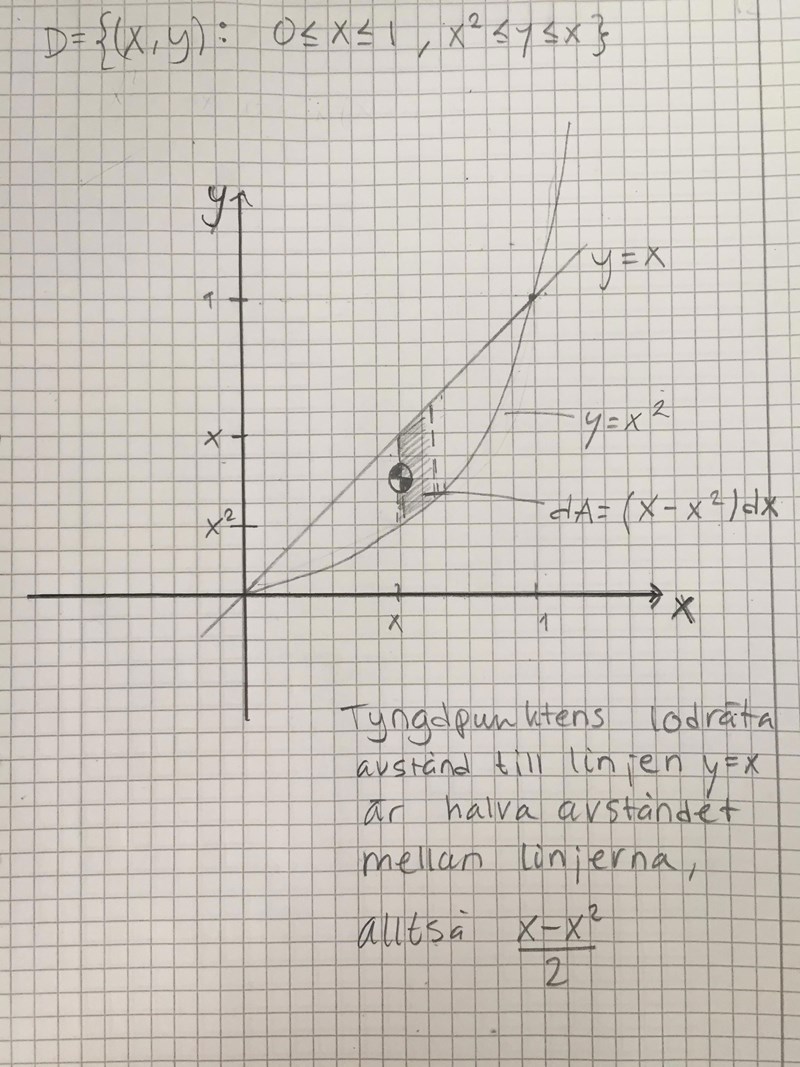 D={(x,y): 0≤x≤1, x²≤y≤x}
y
y=x
1
x
y=x²
x²
dA=(x-x²)dx
x
x
1
Tyngdpunktens lodräta
avstånd till linjen y=x
är halva avståndet
mellan linjerna,
alltså x-x²
2